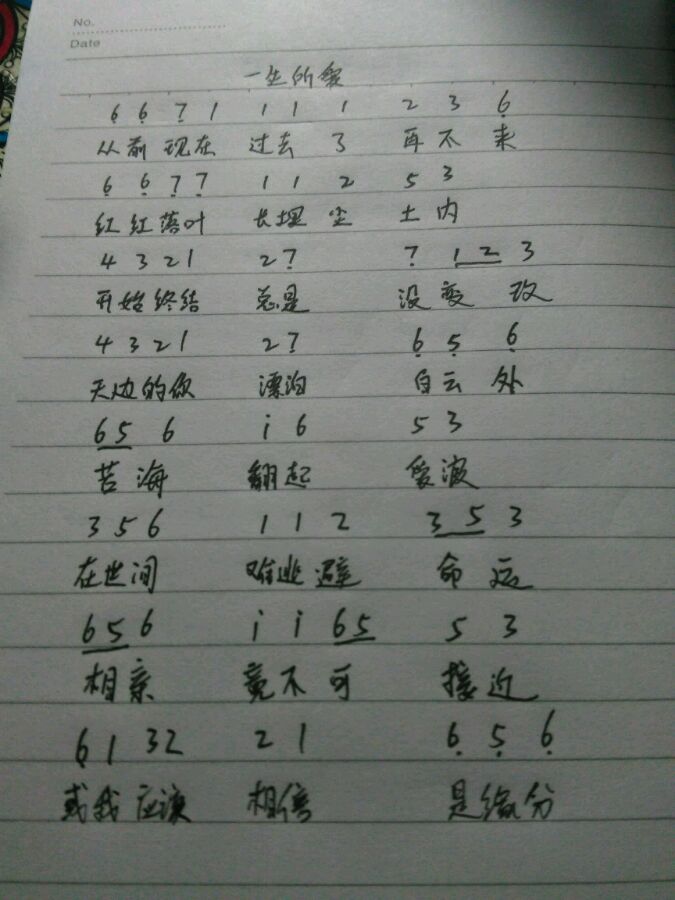 No.
Date
一生所爱
6̣ 6̣ 7̣ 1 1 1 1 2 3 6̣
从前现在 过去了 再不来
6̣ 6̣ 7̣ 7̣ 1 1 2 5 3
红红落叶 长埋尘 土内
4 3 2 1 2 7̣ 7̣ 1 2 3
开始终结 总是 没变改
4 3 2 1 2 7̣ 6̣ 5̣ 6̣
天边的你 漂泊 白云外
6 5 6 i 6 5 3
苦海 翻起 爱波
3 5 6 1 1 2 3 5 3
在世间 难逃避 命运
6 5 6 i i 6 5 5 3
相亲 竟不可 接近
6̣ 1 3 2 2 1 6̣ 5̣ 6̣
或我应该 相信 是缘分